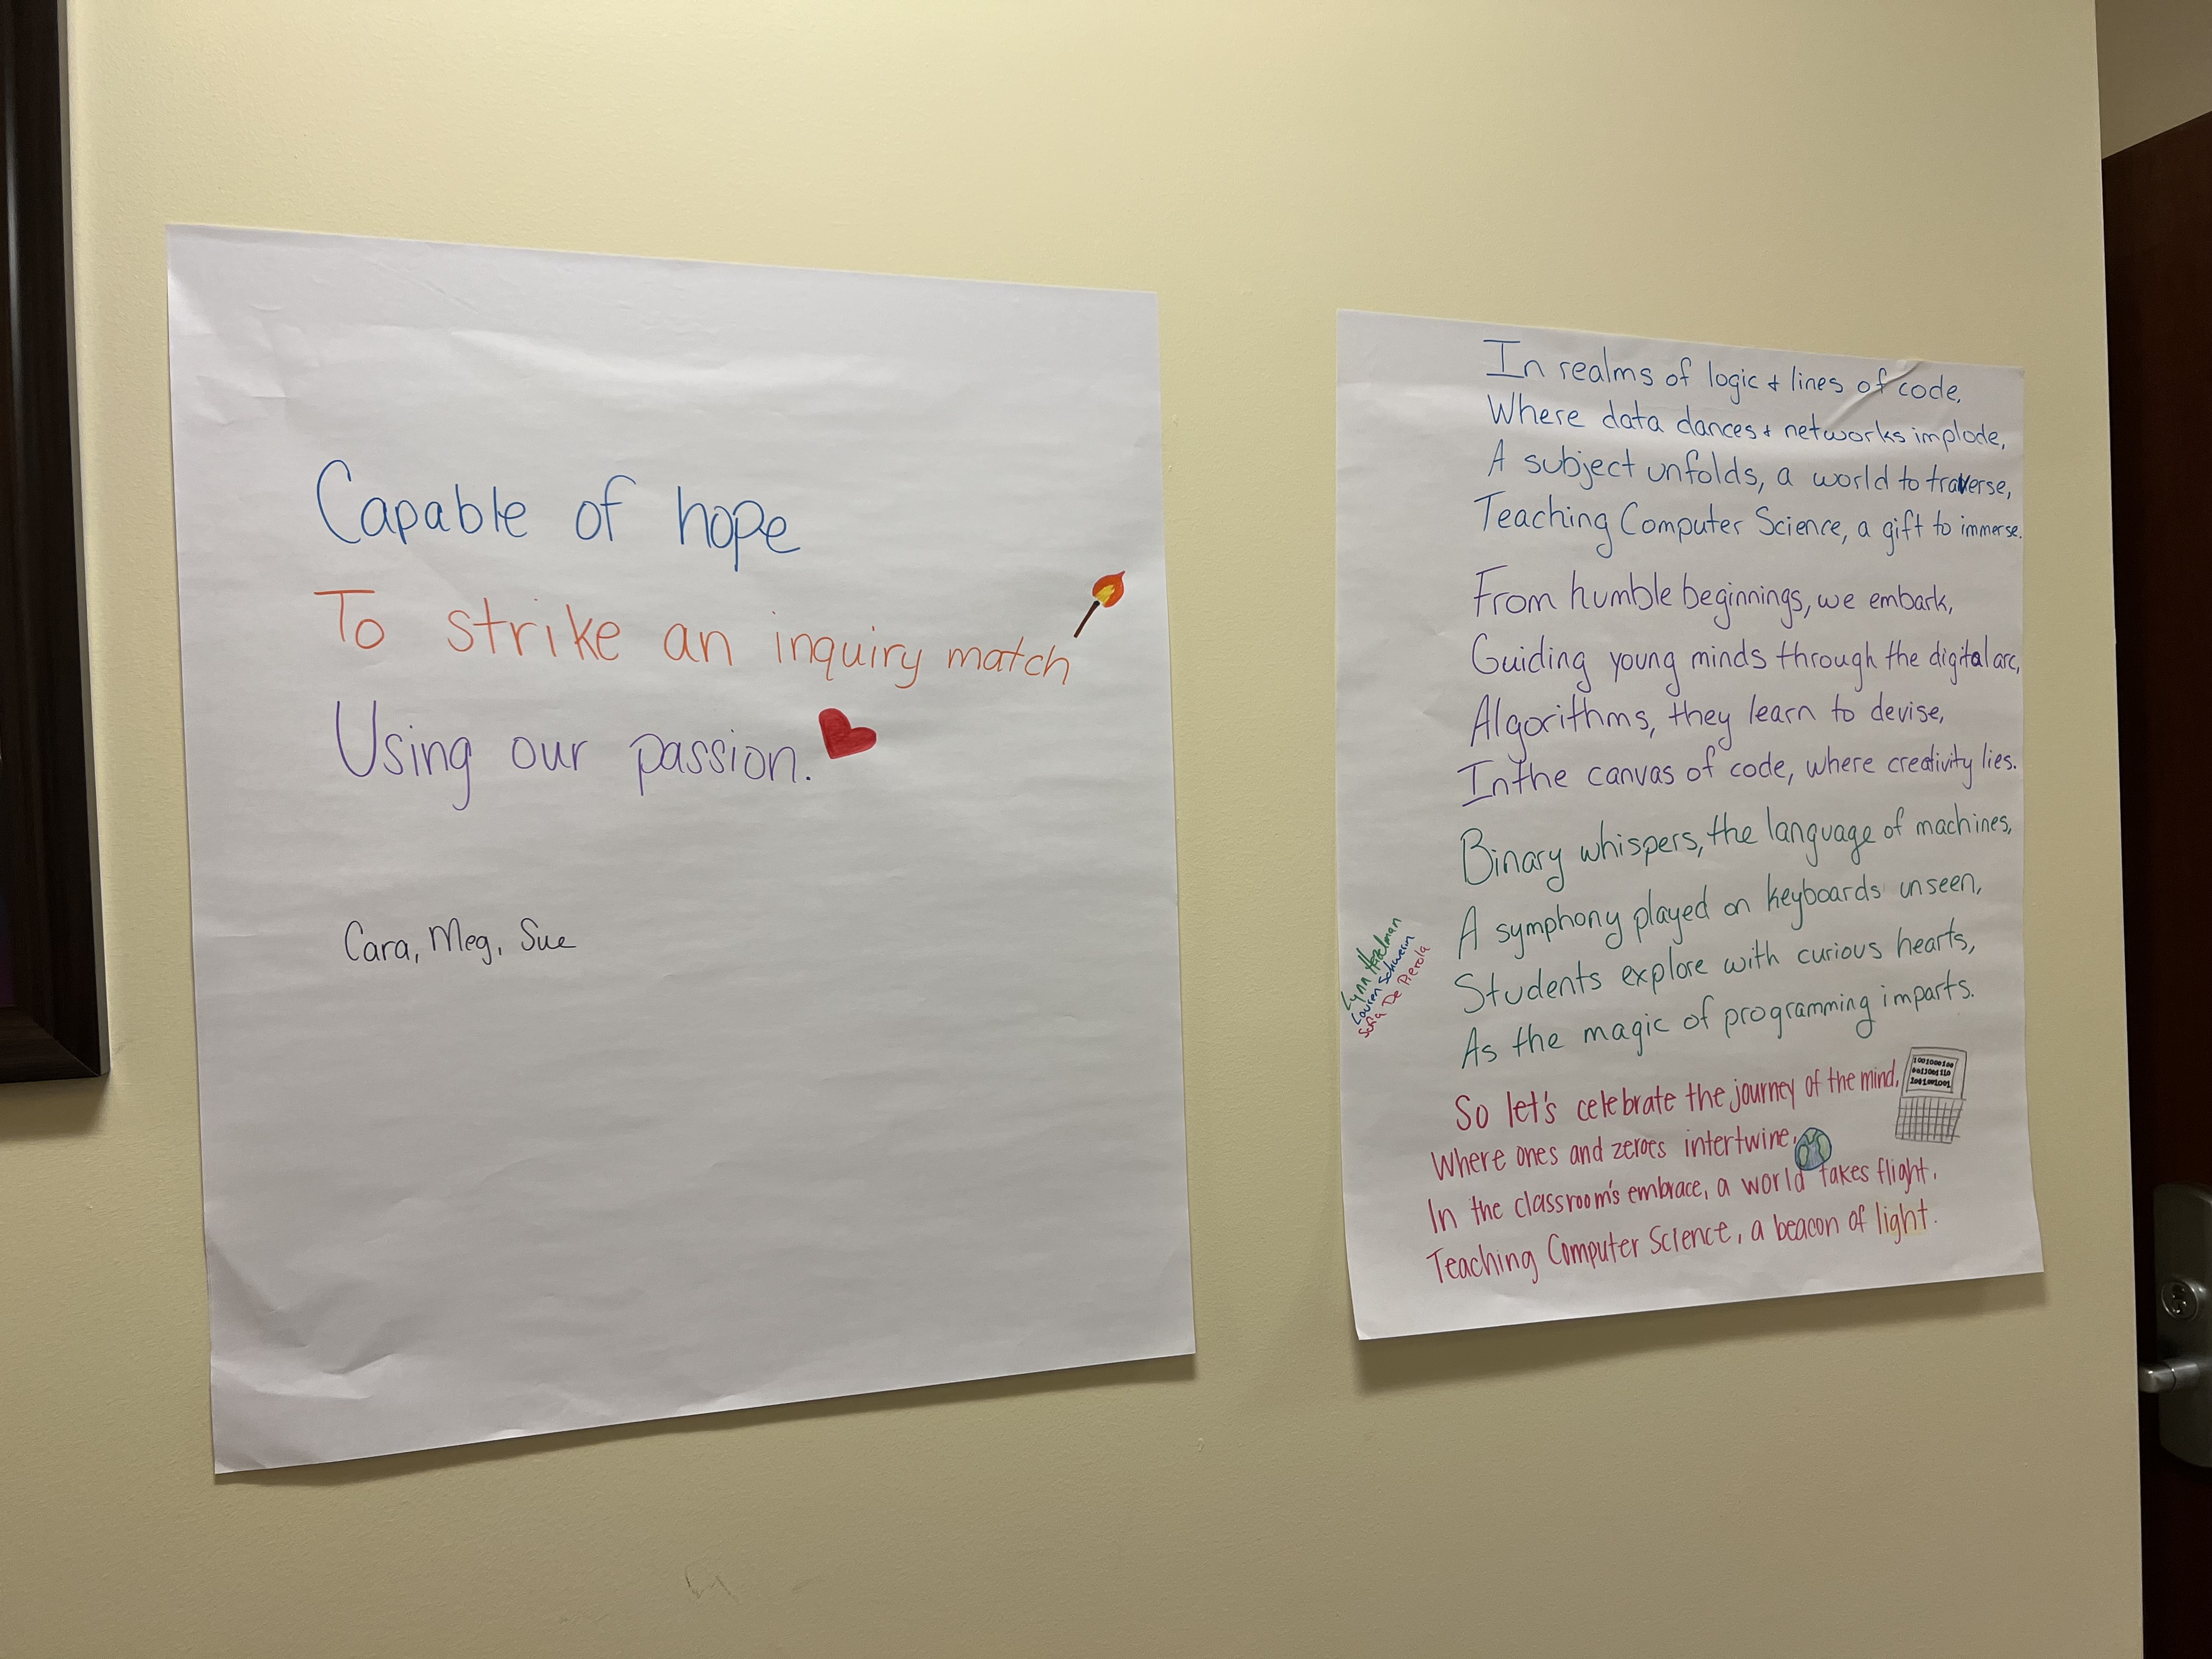 Capable of hope
To strike an inquiry match
Using our passion.
Cara, Meg, Sue
In realms of logic & lines of code,
Where data dances & networks implode,
A subject unfolds, a world to traverse,
Teaching Computer Science, a gift to immerse.
From humble beginnings, we embark,
Guiding young minds through the digital arc,
Algorithms, they learn to devise,
In the canvas of code, where creativity lies.
Binary whispers, the language of machines,
A symphony played on keyboards unseen,
Students explore with curious hearts,
As the magic of programming imparts.
So let's celebrate the journey of the mind,
Where ones and zeroes intertwine,
In the classroom's embrace, a world takes flight,
Teaching Computer Science, a beacon of light.
Lynn
Lauren Schwein
Sofia De Pierola
1001000100